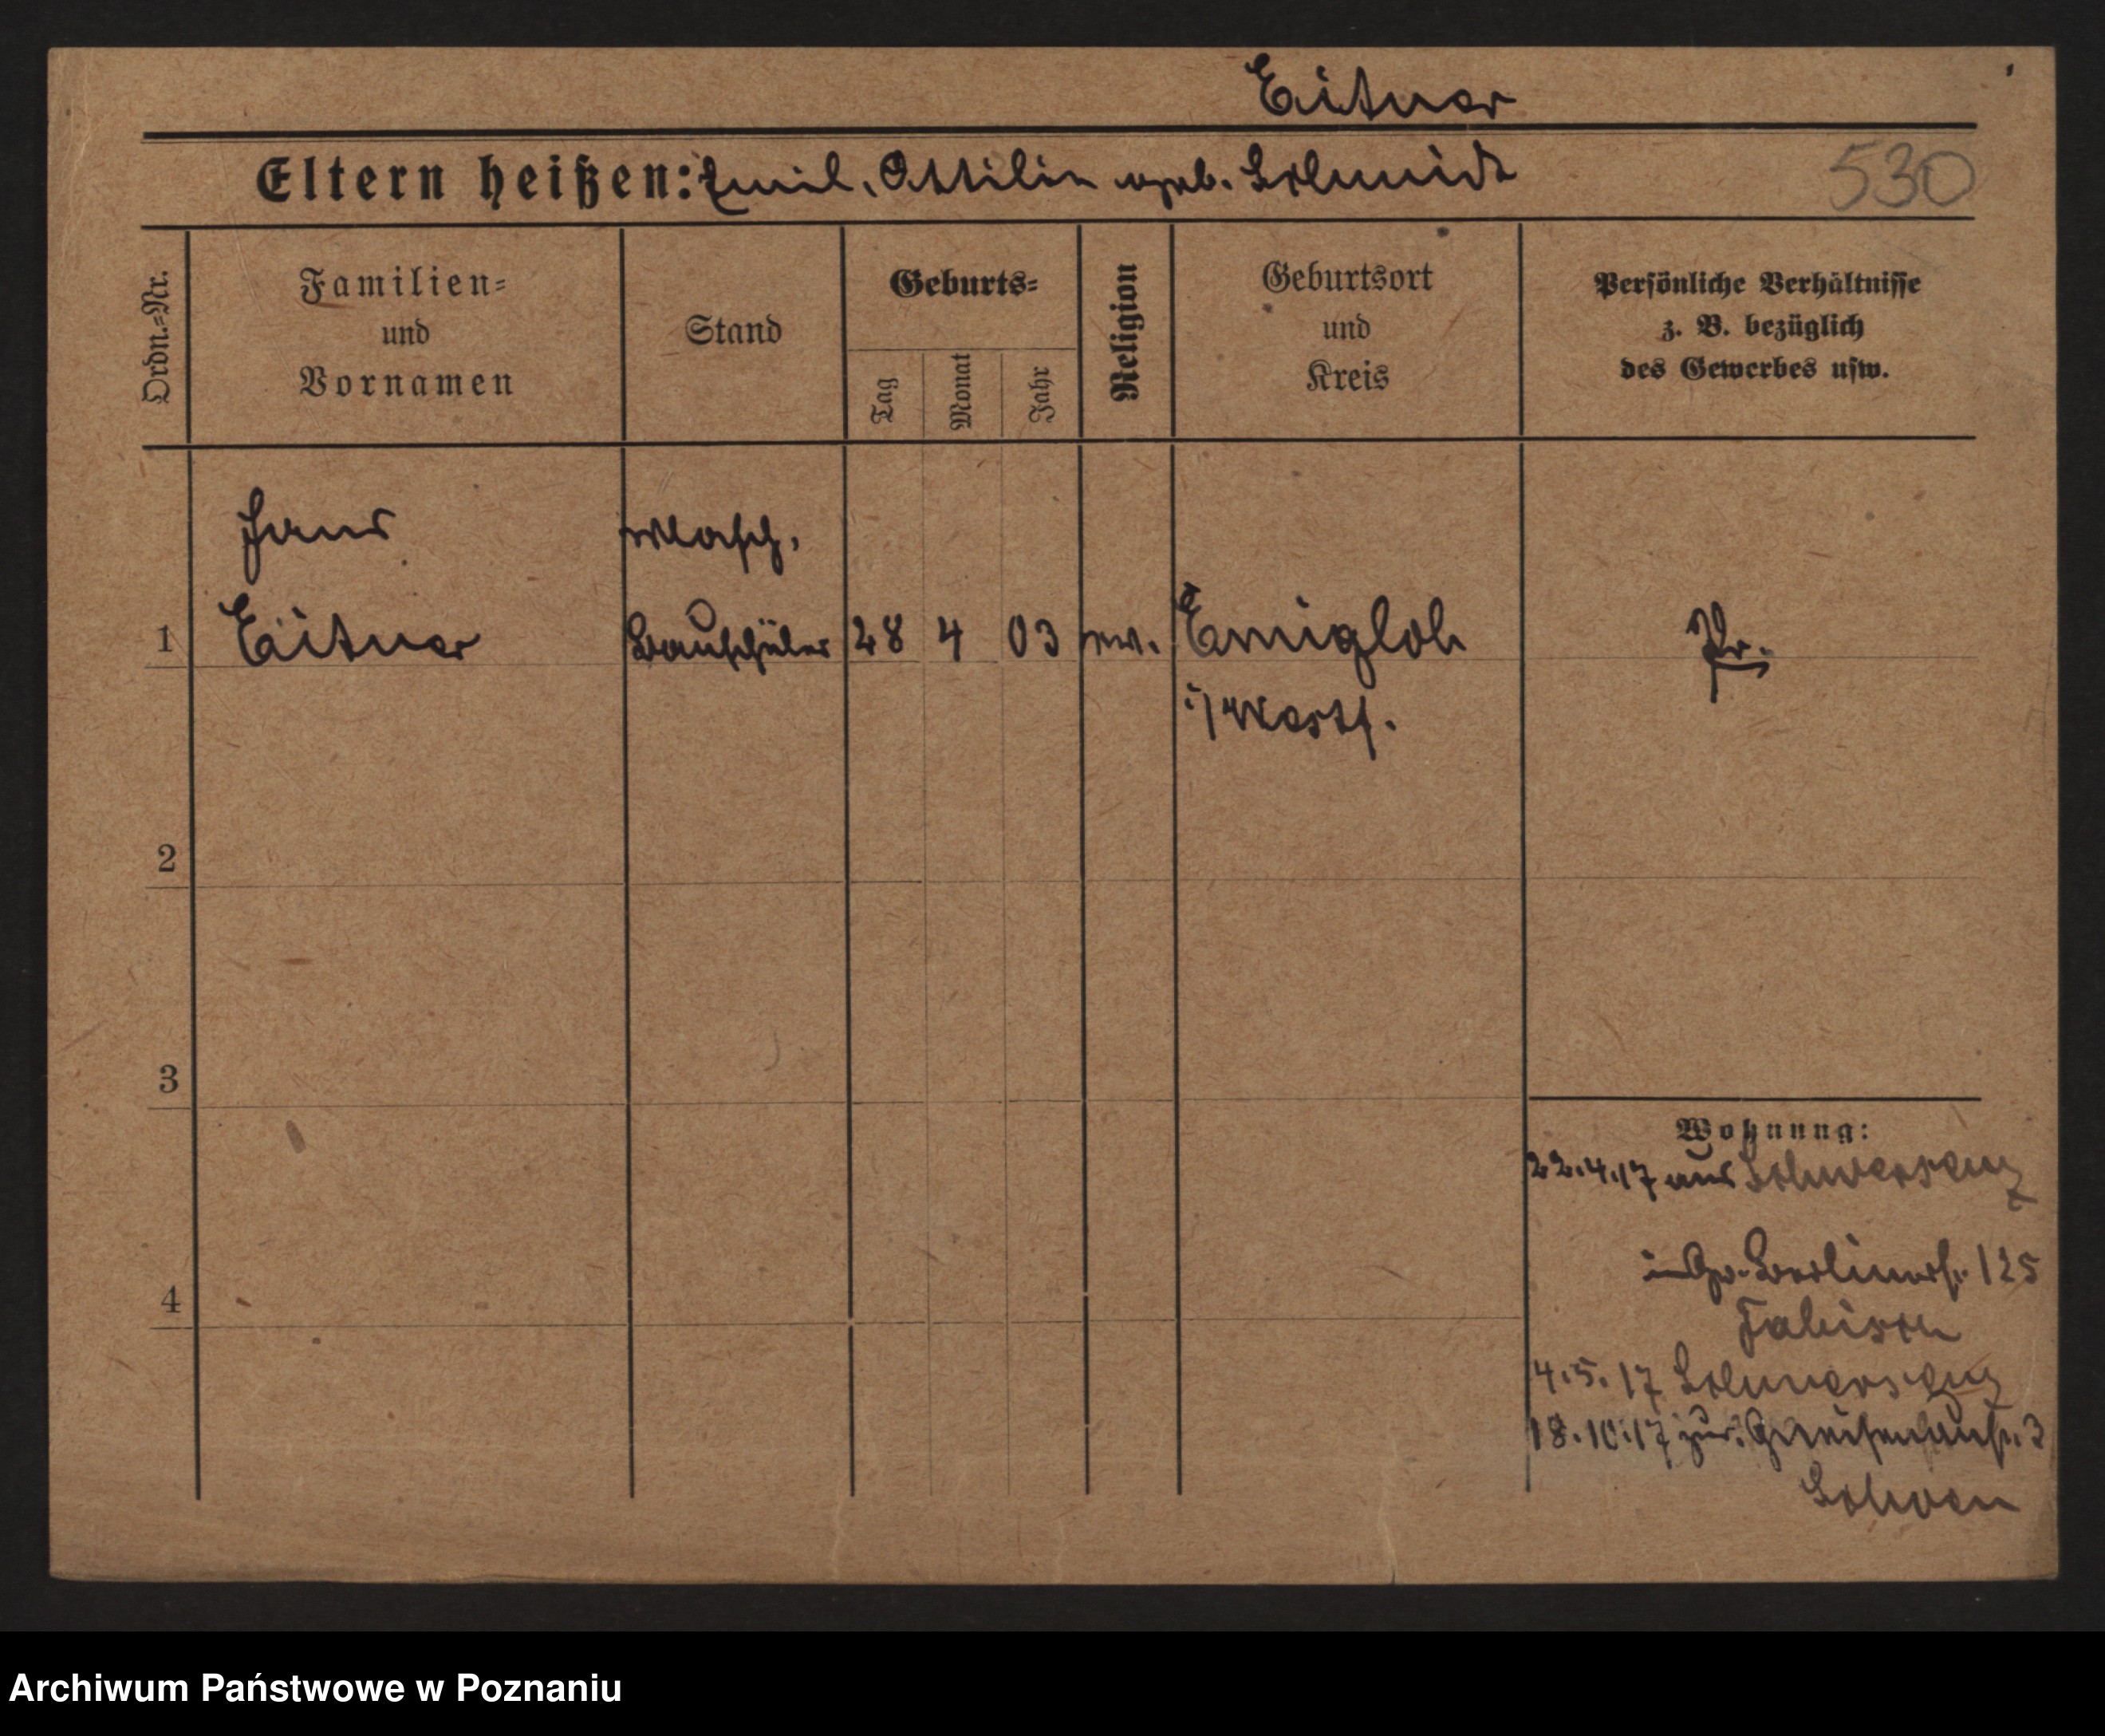 Eitner
Eltern heißen: Emil, Ottilie geb. Schmidt
530
Ordn.=Nr.
Familien=
und
Vornamen
Stand
Geburts=
Tag
Monat
Jahr
Religion
Geburtsort
und
Kreis
Persönliche Verhältnisse
z. B. bezüglich
des Gewerbes usw.
Hans
Masch.
1
Eitner
Bauschüler
28
4
03
ev.
Emigloh
Pr.
i/Westf.
2
3
Wohnung:
22.4.17 aus Schwersenz
Gr. Berlinerstr. 125
4
4.5.17 Schwersenz
18.10.17 zur. Gneisenaustr. 3
Archiwum Państwowe w Poznaniu